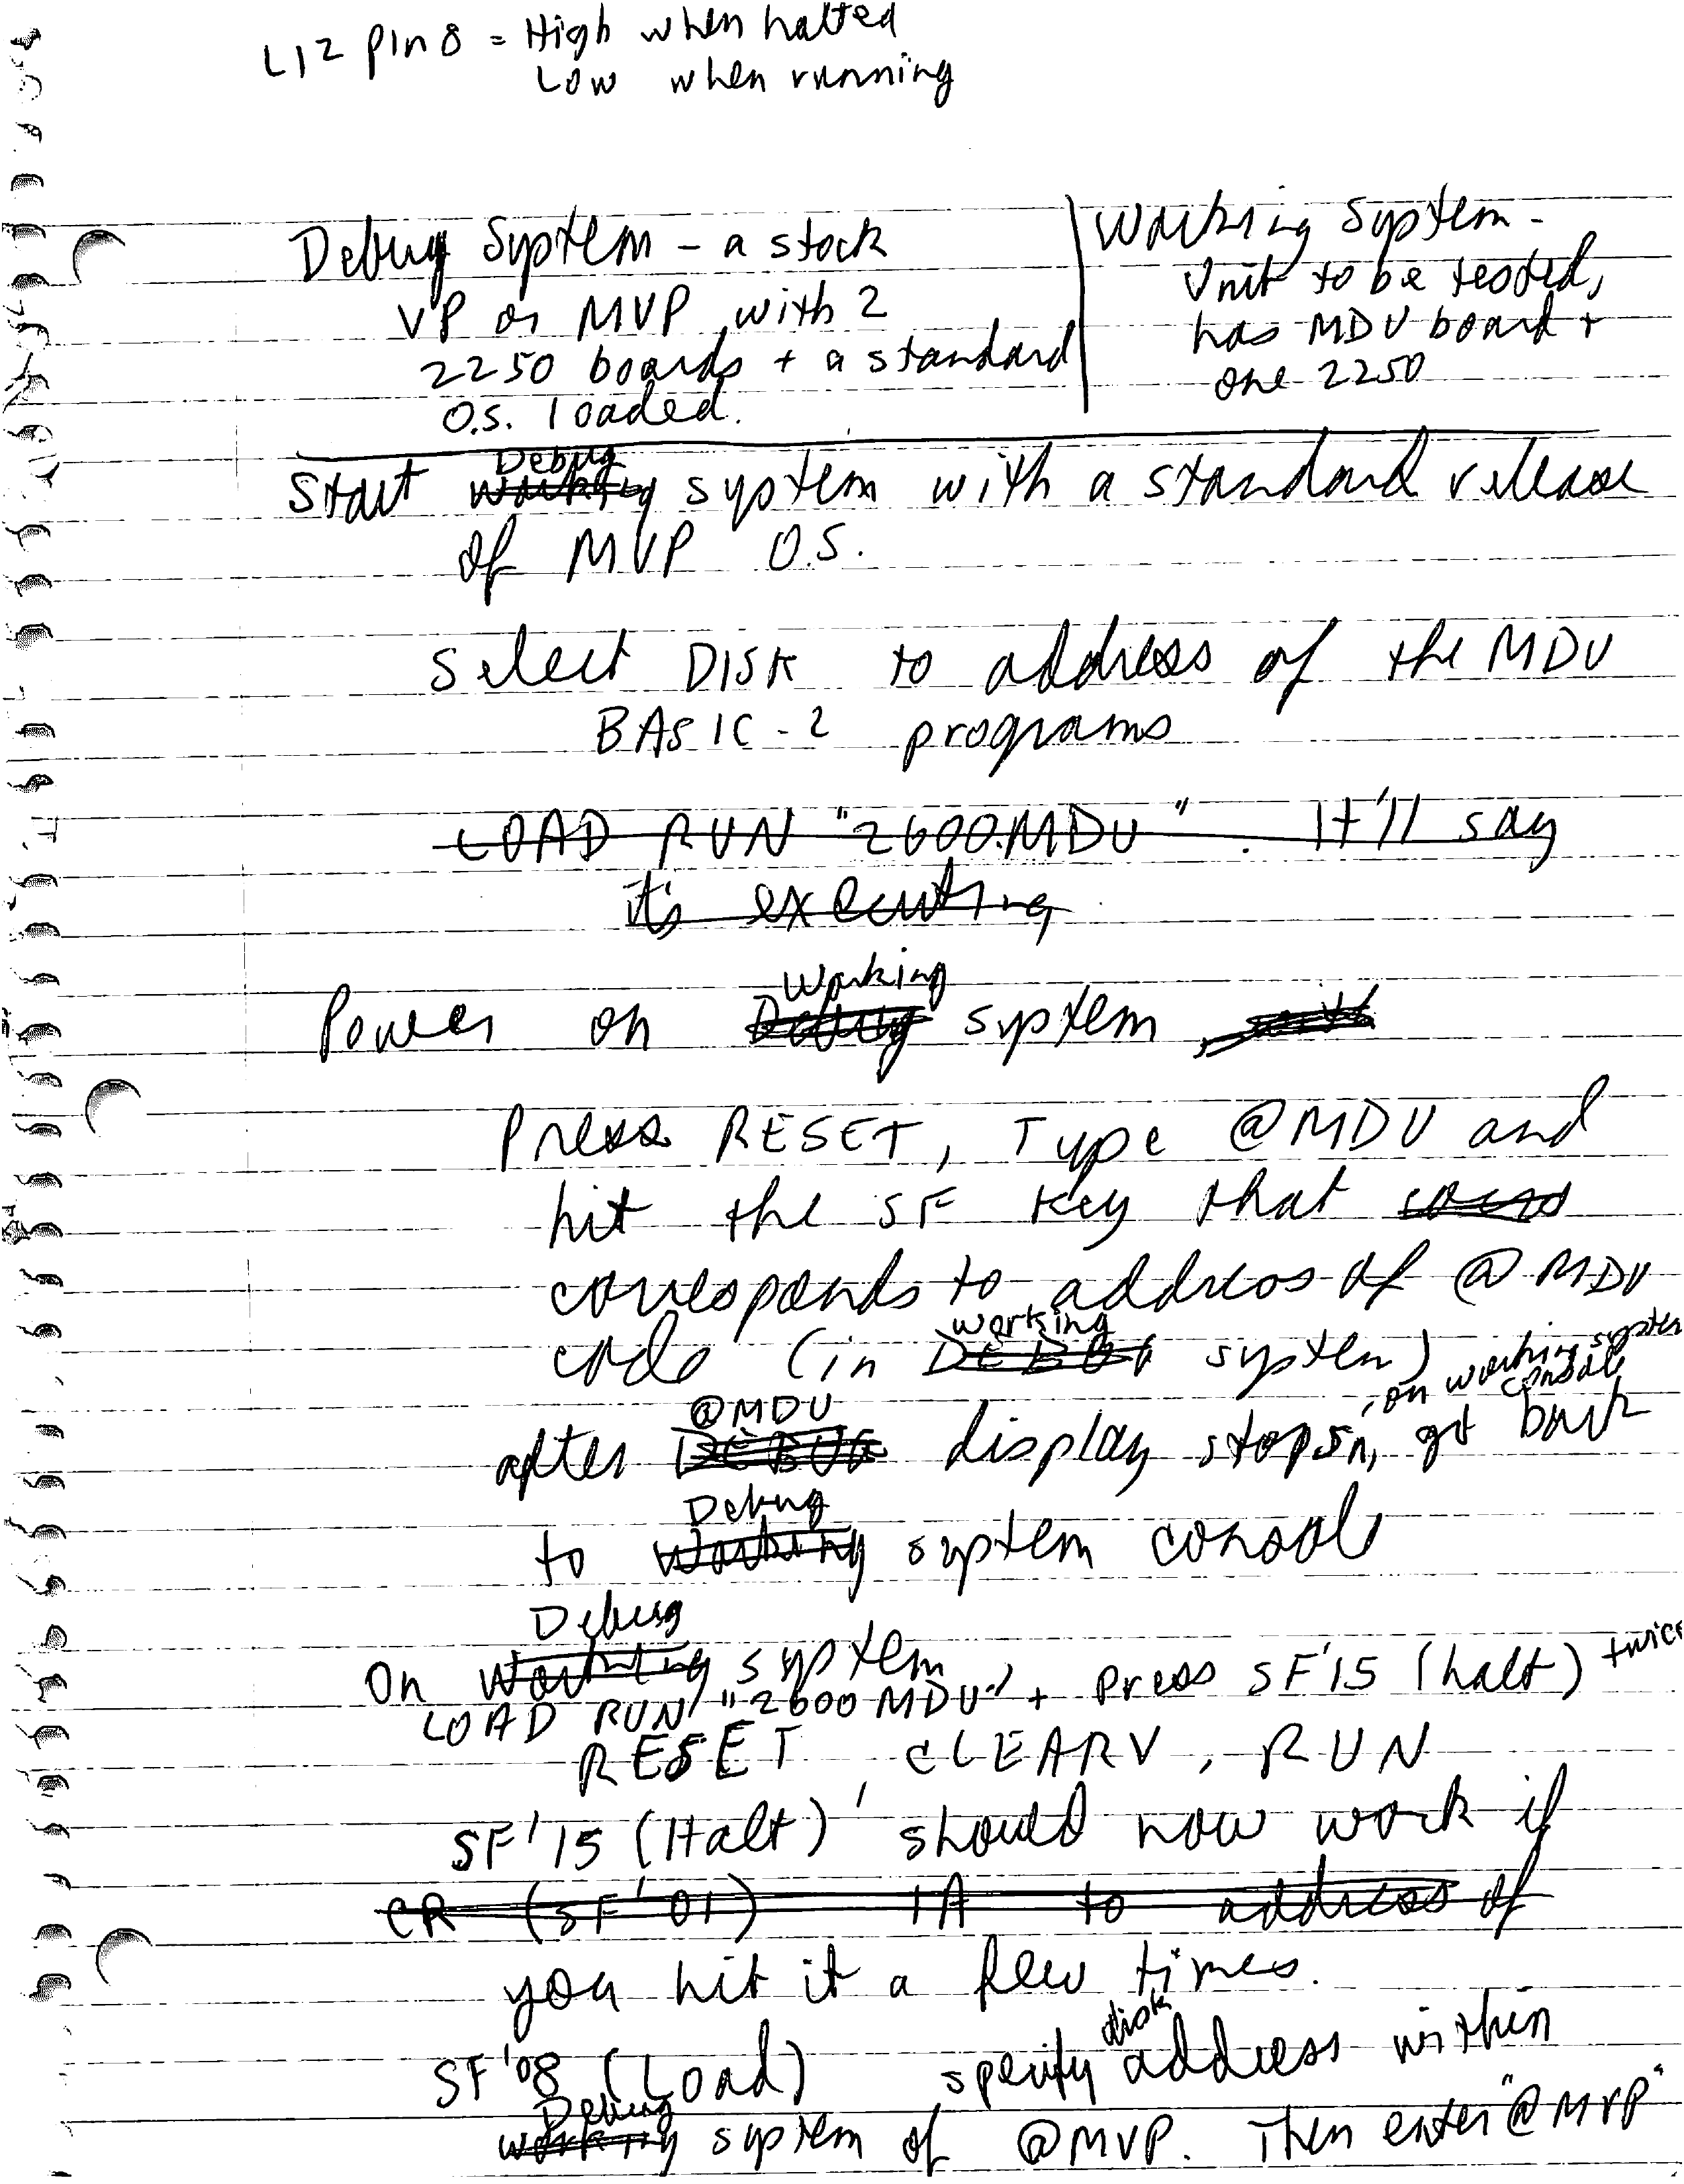 L12 pin 8 = High when halted
Low when running
Debug System - a stock
VP or MVP with 2
2250 boards + a standard
O.S. loaded.
Working System -
Unit to be tested,
has MDU board +
one 2250
Debug
Start Working system with a standard release
of MVP O.S.
Select DISK to address of the MDU
BASIC-2 programs
LOAD RUN "2600.MDU". It'll say
it's executing
Working
Power on Debug system,
Press RESET, Type @MDU and
hit the SF key that
corresponds to address of @MDU
working
code (in DEBUG system)
on working system
console
@MDU
after DEBUG display stops, go back
Debug
to Working system console
Debug
On Working system, twice
LOAD RUN "2600MDU" + press SF'15 (halt)
RESET, CLEARV, RUN
SF'15 (Halt) should now work if
CR (SF'01) IA to address of
you hit it a few times.
disk
SF'08 (Load) specify address within
Debug
working system of @MVP. Then enter "@MVP"